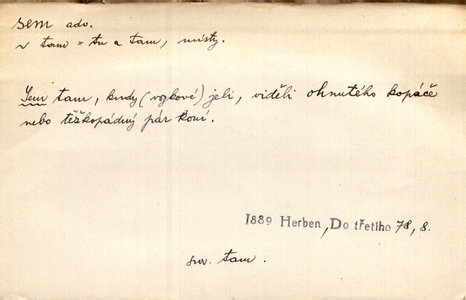 sem adv.
~ tam = tu a tam, místy.
Sem tam, kudy (vojkové) jeli, viděli ohnutého kopáče
nebo těžkopádný pár koní.
1889 Herben, Do třetího 78, 8.
srov. tam.